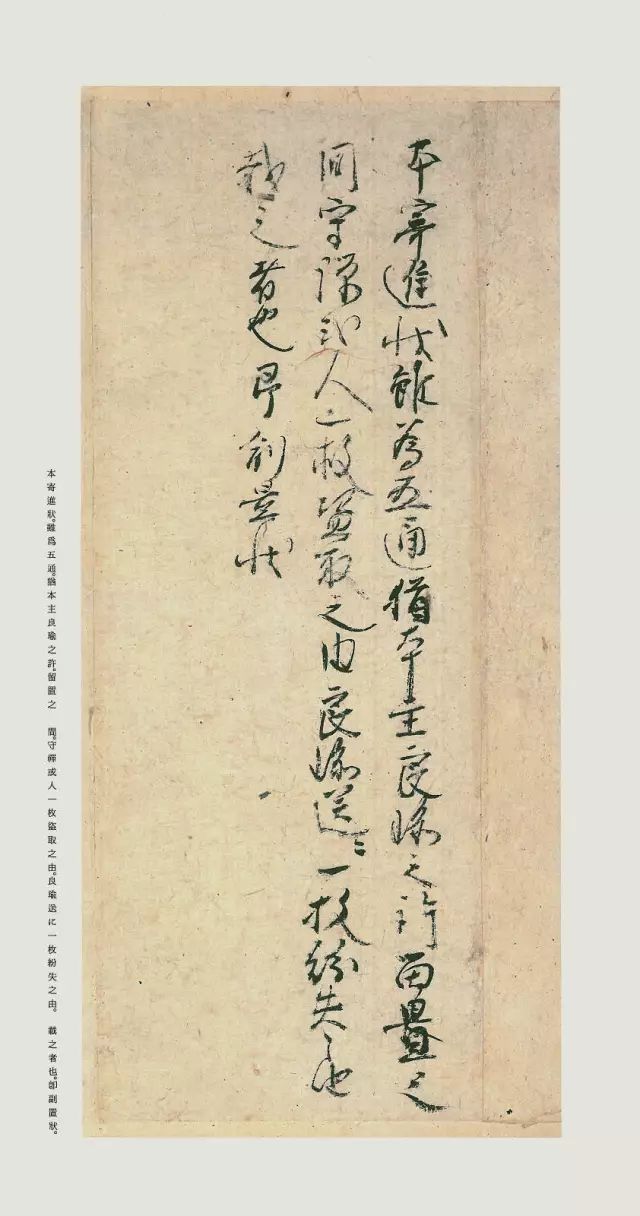 本寄進狀雖爲五通猶本主良瑜之許留置之
間守禪或人一枚盜取之由良瑜送ニ一枚紛失之由
載之者也即副置狀
本寄進狀。雖爲五通。猶本主良瑜之許。留置之　間。守禪或人一枚盜取之由。良瑜送に一枚紛失之由。　載之者也。卽副置狀。